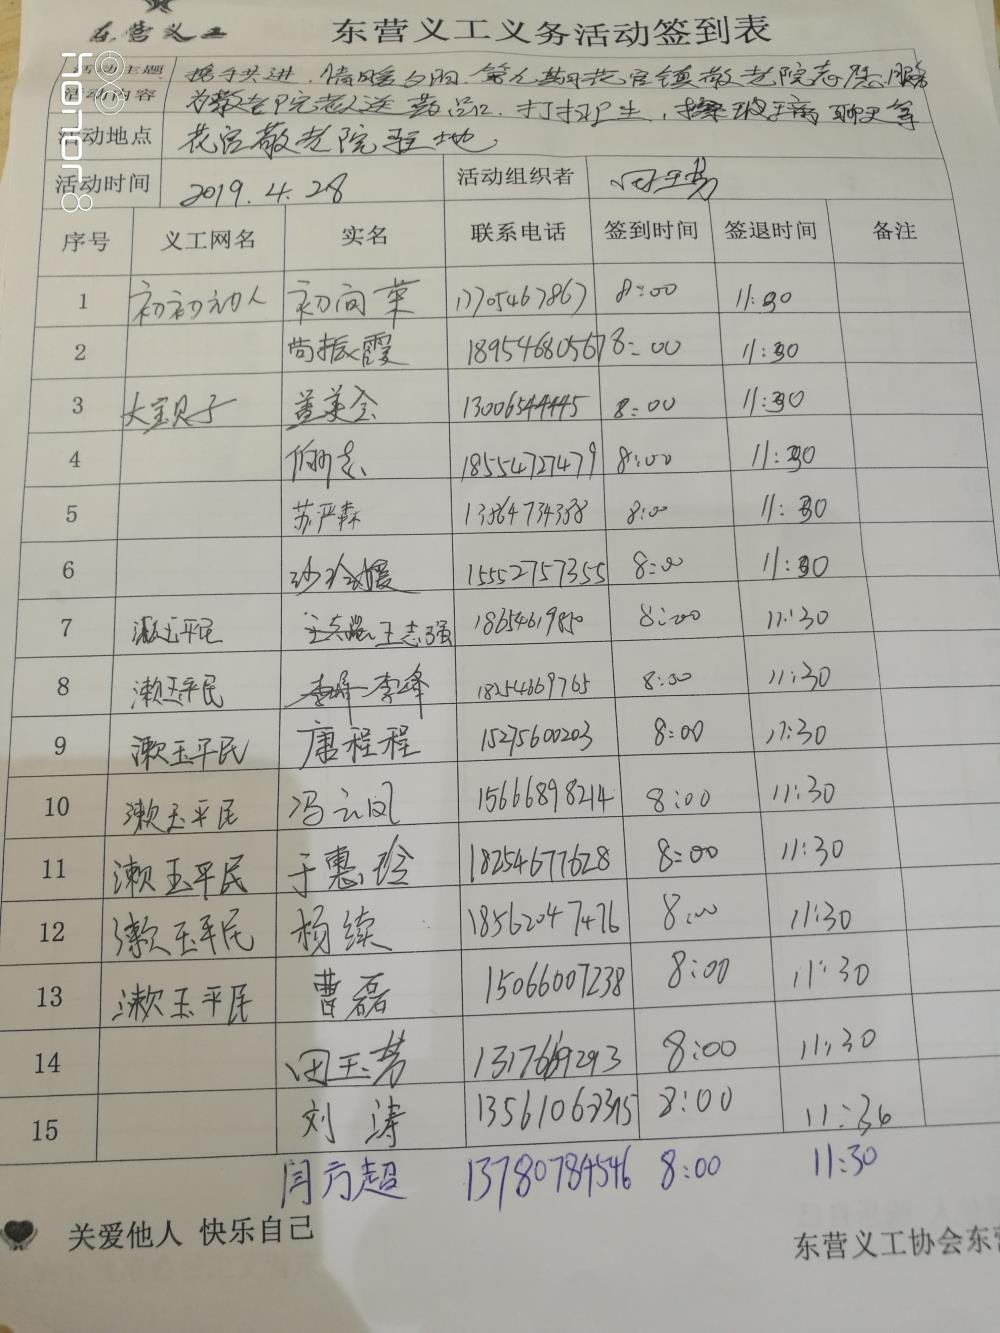 东营义工
东营义工义务活动签到表
honor 8
活动主题 携手共进,情暖夕阳 第九期花官镇敬老院志愿服务
活动内容 为敬老院老人送药品,打扫卫生,擦玻璃聊天等
活动地点 花官敬老院驻地
活动时间 2019.4.28 活动组织者 田玉芳
序号 义工网名 实名 联系电话 签到时间 签退时间 备注
1 初初初人 初向荣 17705467867 8:00 11:30
2 尚振霞 18954680567 8:00 11:30
3 大宝贝子 董美会 13006544445 8:00 11:30
4 18554727479 8:00 11:30
5 苏严森 13864734388 8:00 11:30
6 15552757355 8:00 11:30
7 漱玉平民 王志强 8:00 11:30
8 漱玉平民 李峰 18254669765 8:00 11:30
9 漱玉平民 唐程程 15275600203 8:00 11:30
10 漱玉平民 冯云凤 15666898214 8:00 11:30
11 漱玉平民 于惠玲 18254677628 8:00 11:30
12 漱玉平民 杨续 18562047476 8:00 11:30
13 漱玉平民 曹磊 15066007238 8:00 11:30
14 田玉芳 8:00 11:30
15 刘涛 8:00 11:30
闫方超 13780784546 8:00 11:30
关爱他人 快乐自己
东营义工协会东营